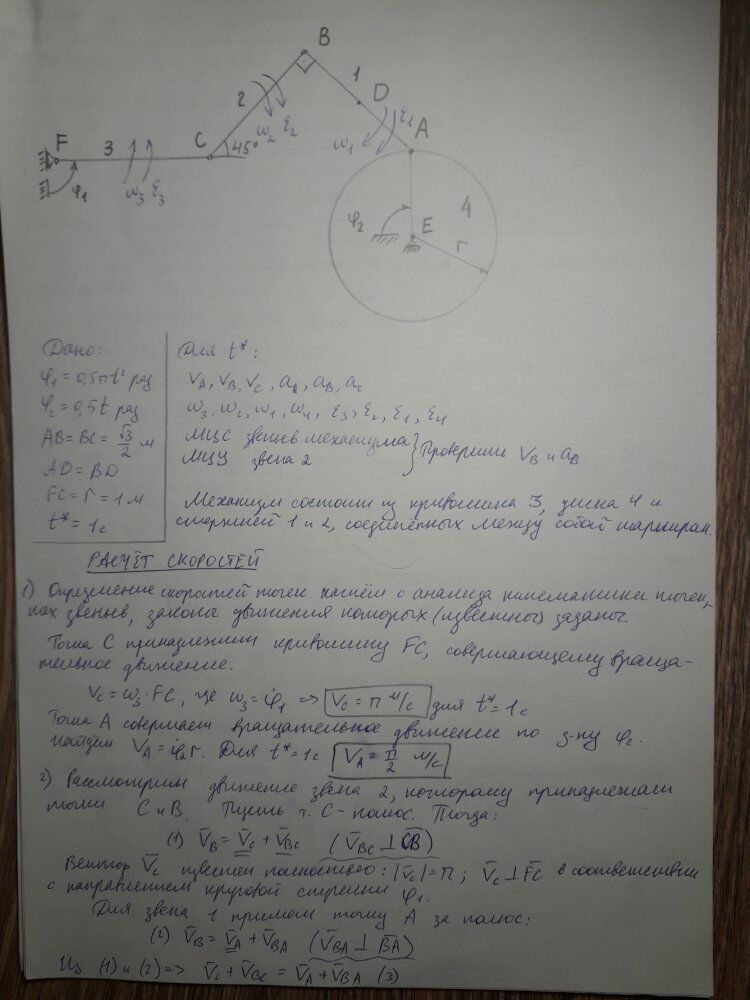 B
1
D
2
ω₂ ε₂
ε₁
ω₁
A
F
3
C
45°
φ₁
ω₃ ε₃
φ₂
E
4
r
Дано:
φ₁ = 0,5πt² рад
φ₂ = 0,5t рад
AB = BC = √3/2 м
AD = BD
FC = r = 1 м
t* = 1с
Для t*:
V_A, V_B, V_C, a_A, a_B, a_C
ω₃, ω₂, ω₁, ω₄, ε₃, ε₂, ε₁, ε₄
МЦС звеньев механизма
МЦУ звена 2
} Проверить V_B и a_B
Механизм состоит из кривошипа 3, диска 4 и
стержней 1 и 2, соединённых между собой шарнирами.
РАСЧЁТ СКОРОСТЕЙ
1) Определение скоростей точек начнём с анализа кинематики точек
звеньев, законы движения которых (известны) заданы.
Точка C принадлежит кривошипу FC, совершающему враща-
тельное движение.
V_C = ω₃ · FC, где ω₃ = φ̇₁ ⇒ V_C = π м/с для t* = 1с
Точка A совершает вращательное движение по з-ну φ₂.
Найдём V_A = φ̇₂ r. Для t* = 1с V_A = π/2 м/с
2) Рассмотрим движение звена 2, которому принадлежат
точки C и B. Пусть т. C - полюс. Тогда:
(1) V̄_B = V̄_C + V̄_BC (V̄_BC ⊥ C̄B̄)
Вектор V̄_C известен полностью: |V̄_C| = π; V̄_C ⊥ F̄C̄ в соответствии
с направлением круговой стрелки φ₁.
Для звена 1 примем точку A за полюс:
(2) V̄_B = V̄_A + V̄_BA (V̄_BA ⊥ B̄Ā)
Из (1) и (2) ⇒ V̄_C + V̄_BC = V̄_A + V̄_BA (3)